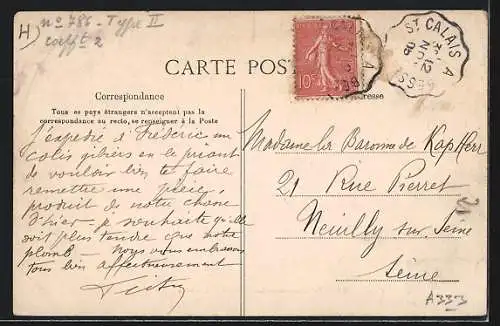 H) no 786 - Type II
coefft 2
CARTE POST
10c
ST CALAIS A
BESSÉ
12
NOV
06
Correspondance
Tous ces pays étrangers n'acceptent pas la
correspondance au recto, se renseigner à la Poste
Adresse
J'expédie à Frédéric un
colis gibiers en le priant
de vouloir bien te faire
remettre une pièce,
produit de notre chasse
d'hier - je souhaite qu'elle
soit plus tendre que notre
plomb - Nous vous embrassons
tous bien affectueusement
Madame la Baronne de Kap Herr
21 Rue Pierret
Neuilly sur Seine
Seine
A333